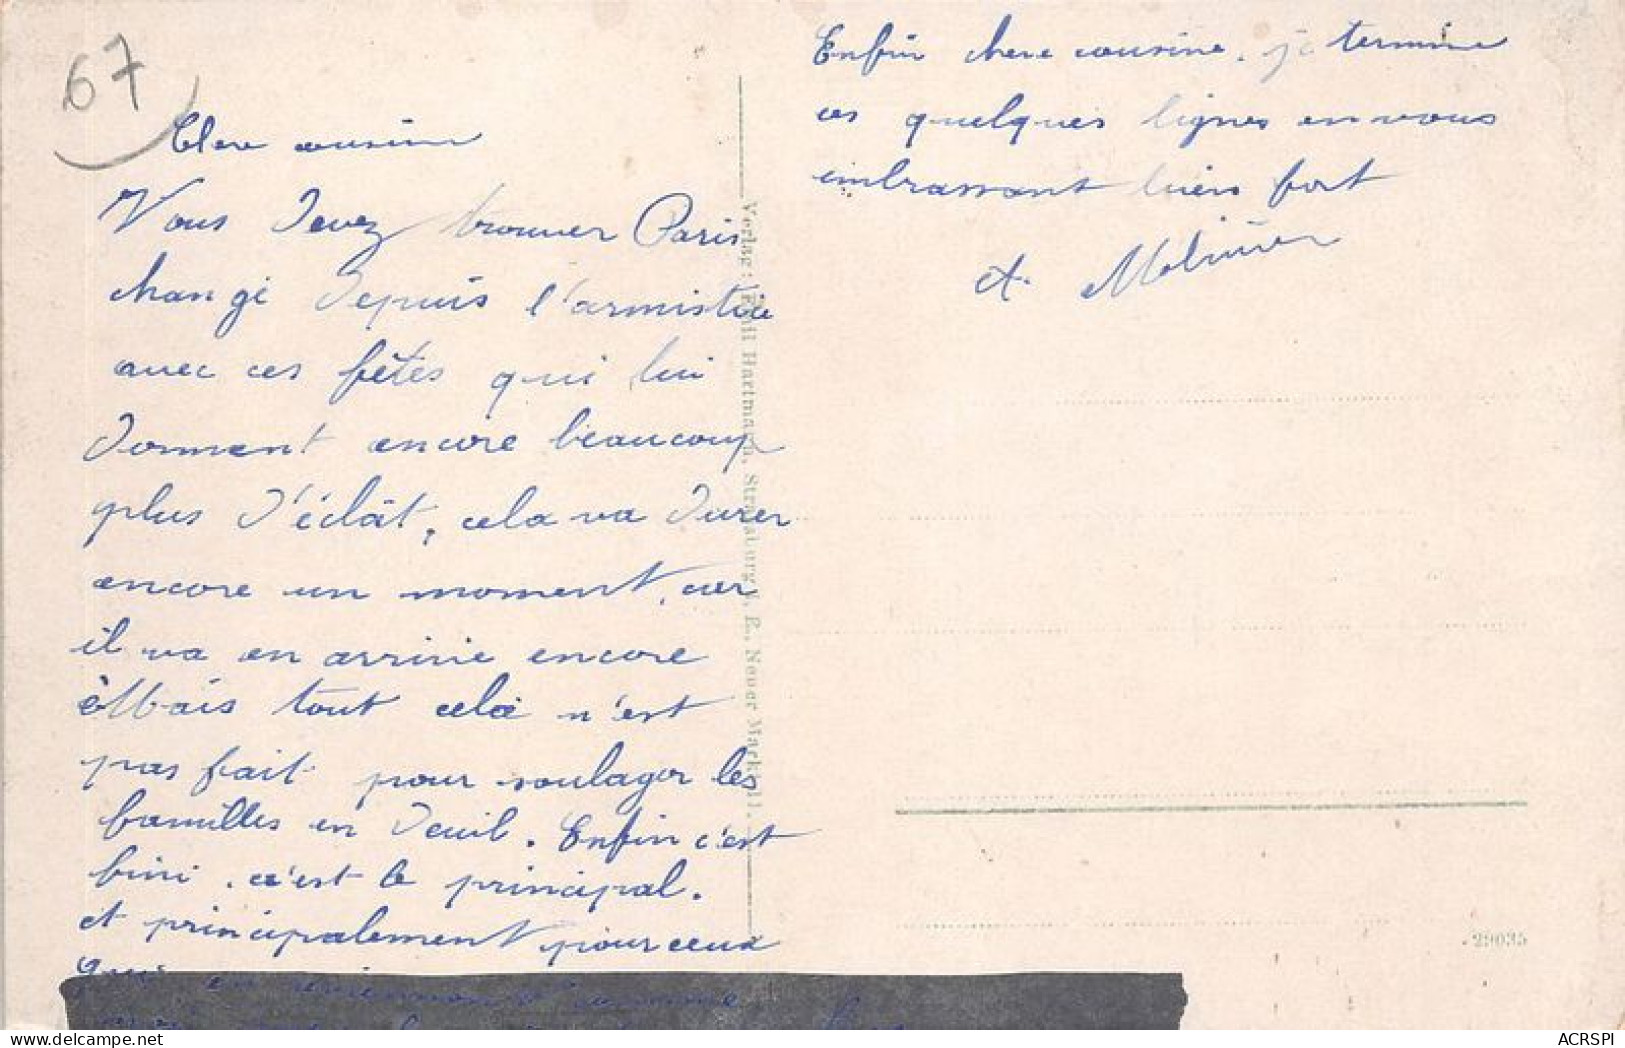 67
Chere cousine
Vous devez trouver Paris
changé depuis l'armistice
avec ces fêtes qui lui
donnent encore beaucoup
plus d'éclât, cela va durer
encore un moment, car
il va en arrivé encore
Mais tout celà n'est
pas fait pour soulager les
familles en deuil. Enfin c'est
fini, c'est le principal.
et principalement pour ceux
qui en reviennent comme
Enfin chere cousine, je termine
ces quelques lignes en vous
embrassant bien fort
et. Molinier
Verlag: Emil Hartmann, Strassburg i. E., Neuer Markt 11.
29035
ACRSPI